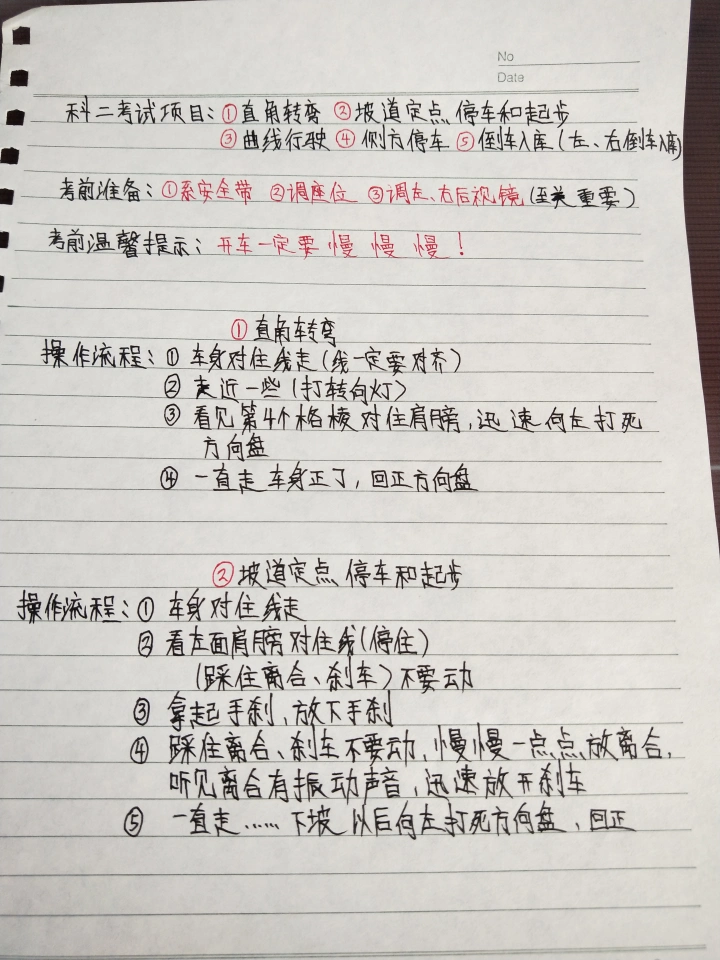 No
Date
科二考试项目：①直角转弯 ②坡道定点停车和起步
③曲线行驶 ④侧方停车 ⑤倒车入库（左、右倒车入库）
考前准备：①系安全带 ②调座位 ③调左、右后视镜（至关重要）
考前温馨提示：开车一定要慢 慢 慢！
①直角转弯
操作流程：① 车身对住线走（线一定要对齐）
② 走近一些（打转向灯）
③ 看见第4个格棱对住肩膀，迅速向左打死
方向盘
④ 一直走 车身正了，回正方向盘
②坡道定点停车和起步
操作流程：① 车身对住线走
② 看左面肩膀对住线（停住）
（踩住离合、刹车）不要动
③ 拿起手刹，放下手刹
④ 踩住离合、刹车不要动，慢慢一点点放离合，
听见离合有振动声音，迅速放开刹车
⑤ 一直走……下坡以后向左打死方向盘，回正